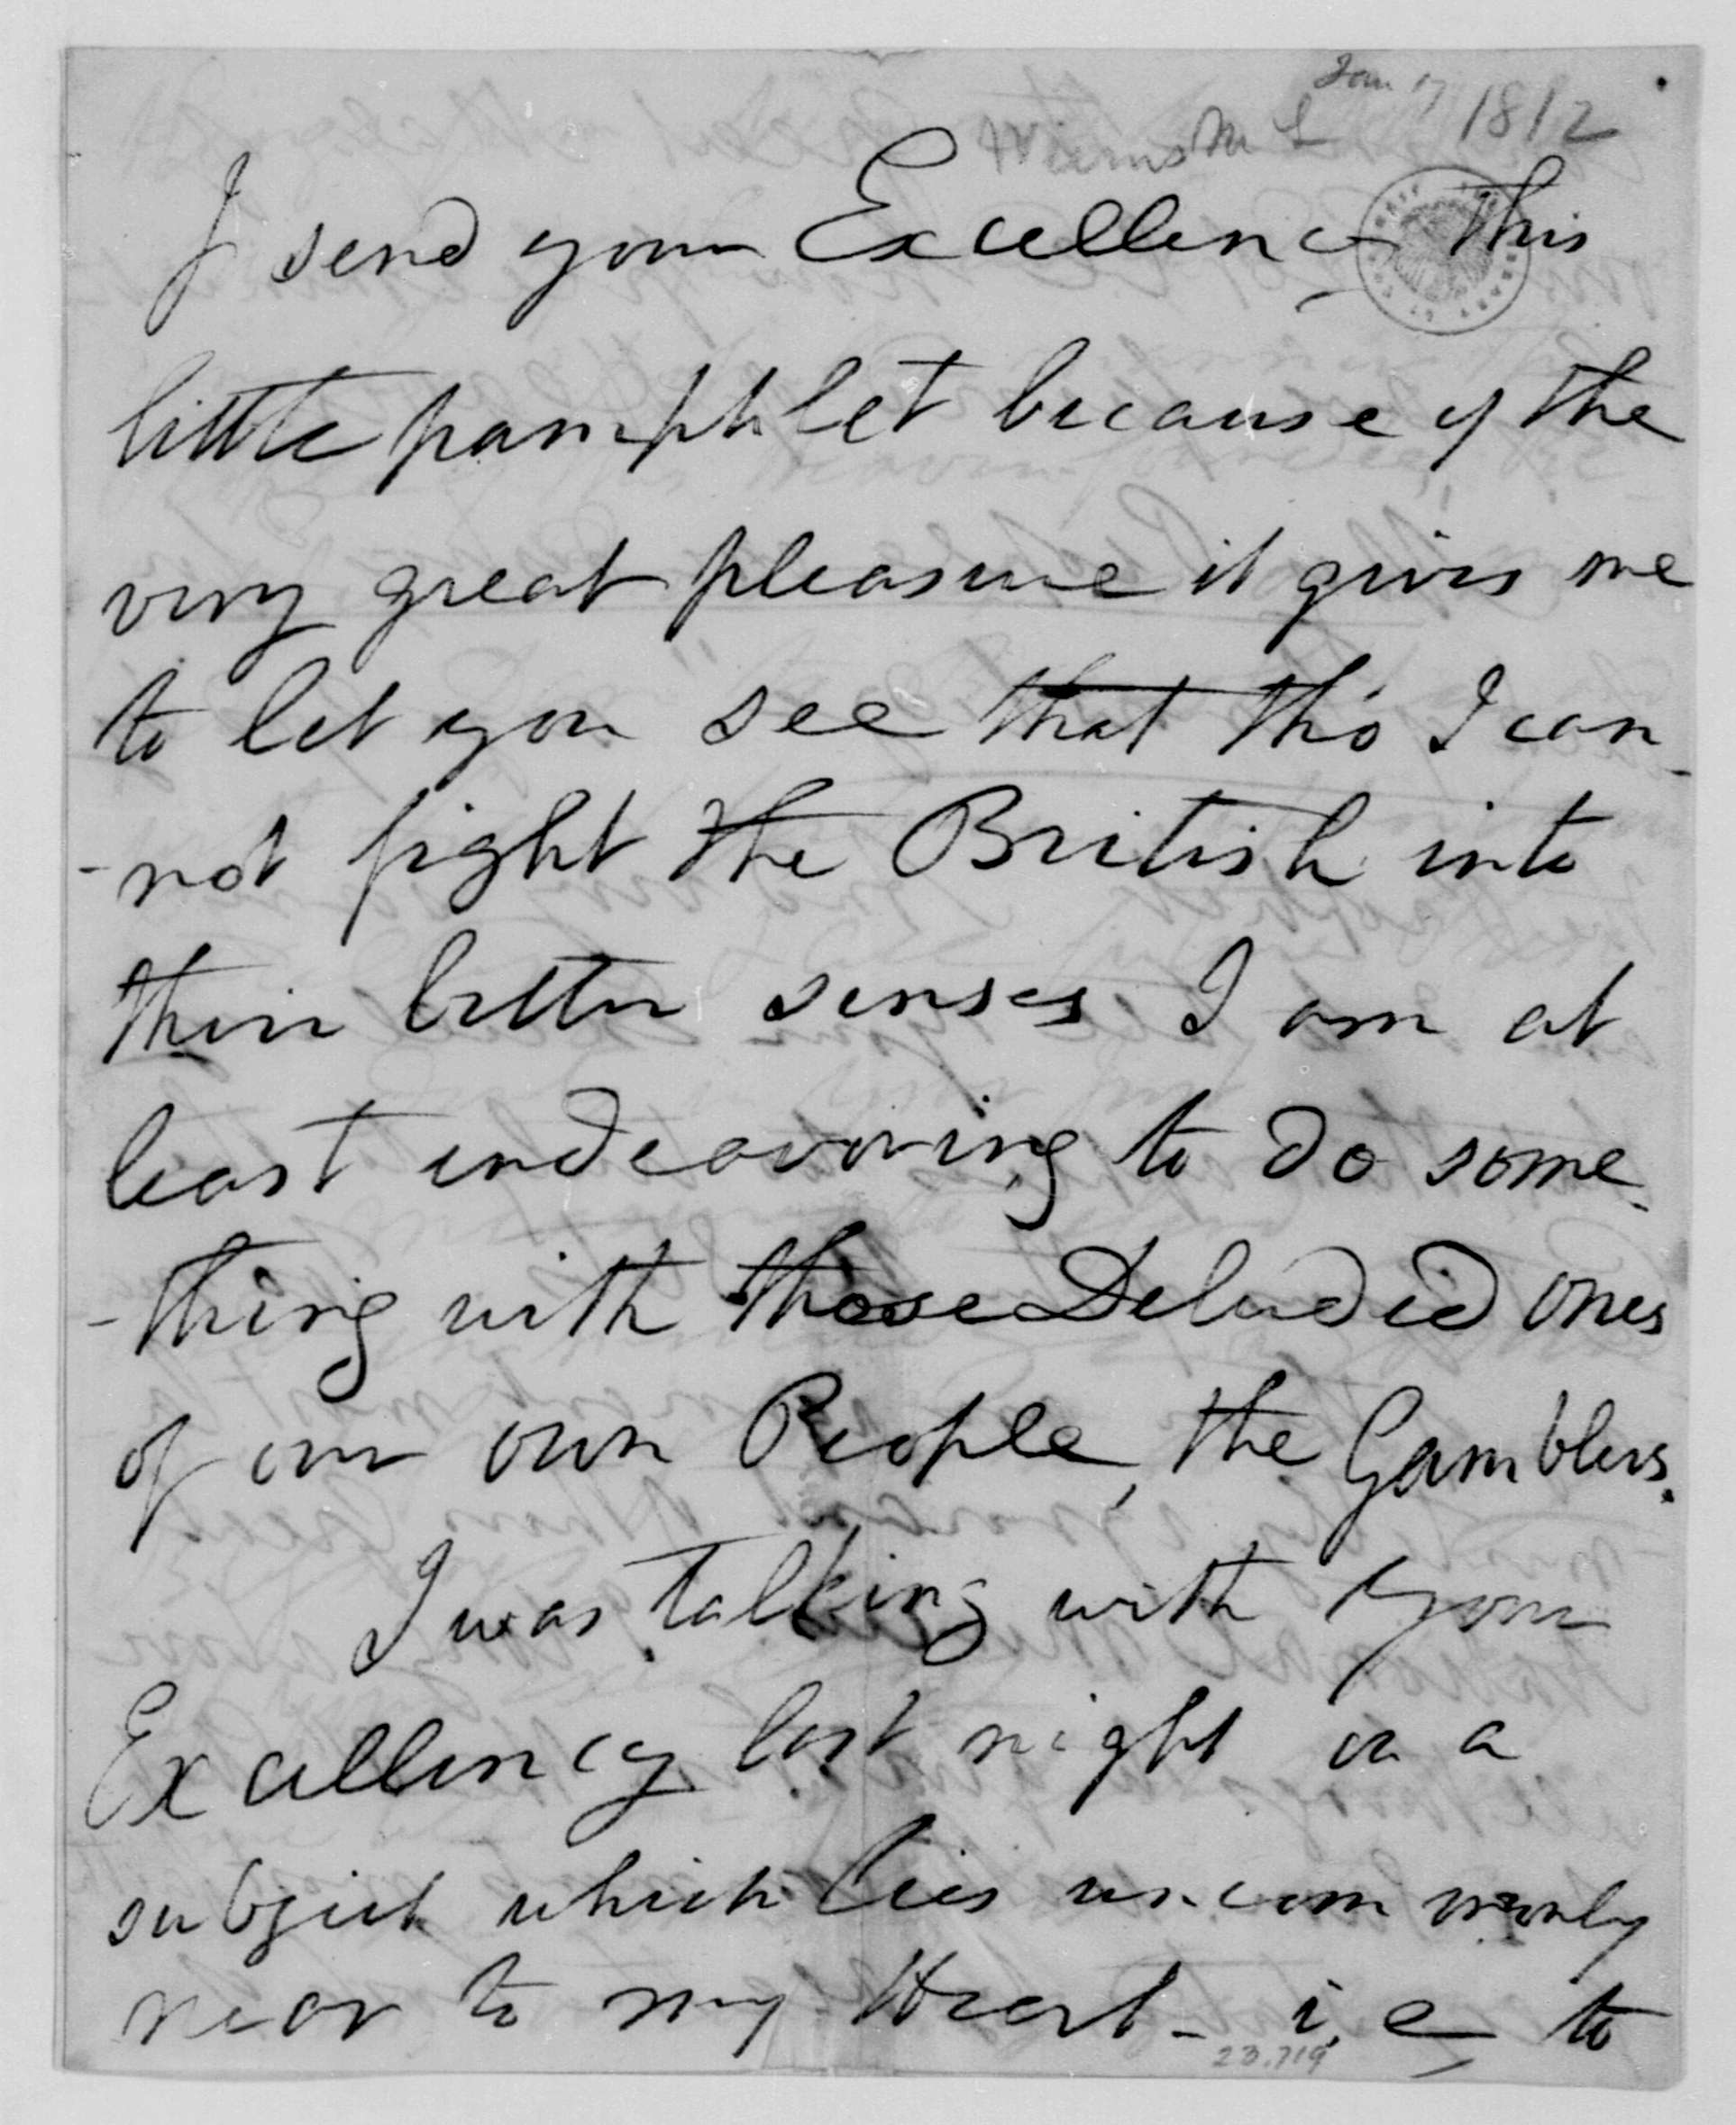 Jan 17 1812
Weems M L
I send your Excellency this
little pamphlet because of the
very great pleasure it gives me
to let you see that tho' I can-
-not fight the British into
their better senses I am at
least endeavoring to do some-
-thing with those Deluded ones
of our own People, the Gamblers.
I was talking with Your
Excellency last night on a
subject which lies uncommonly
near to my Heart - i, e, to
23.719